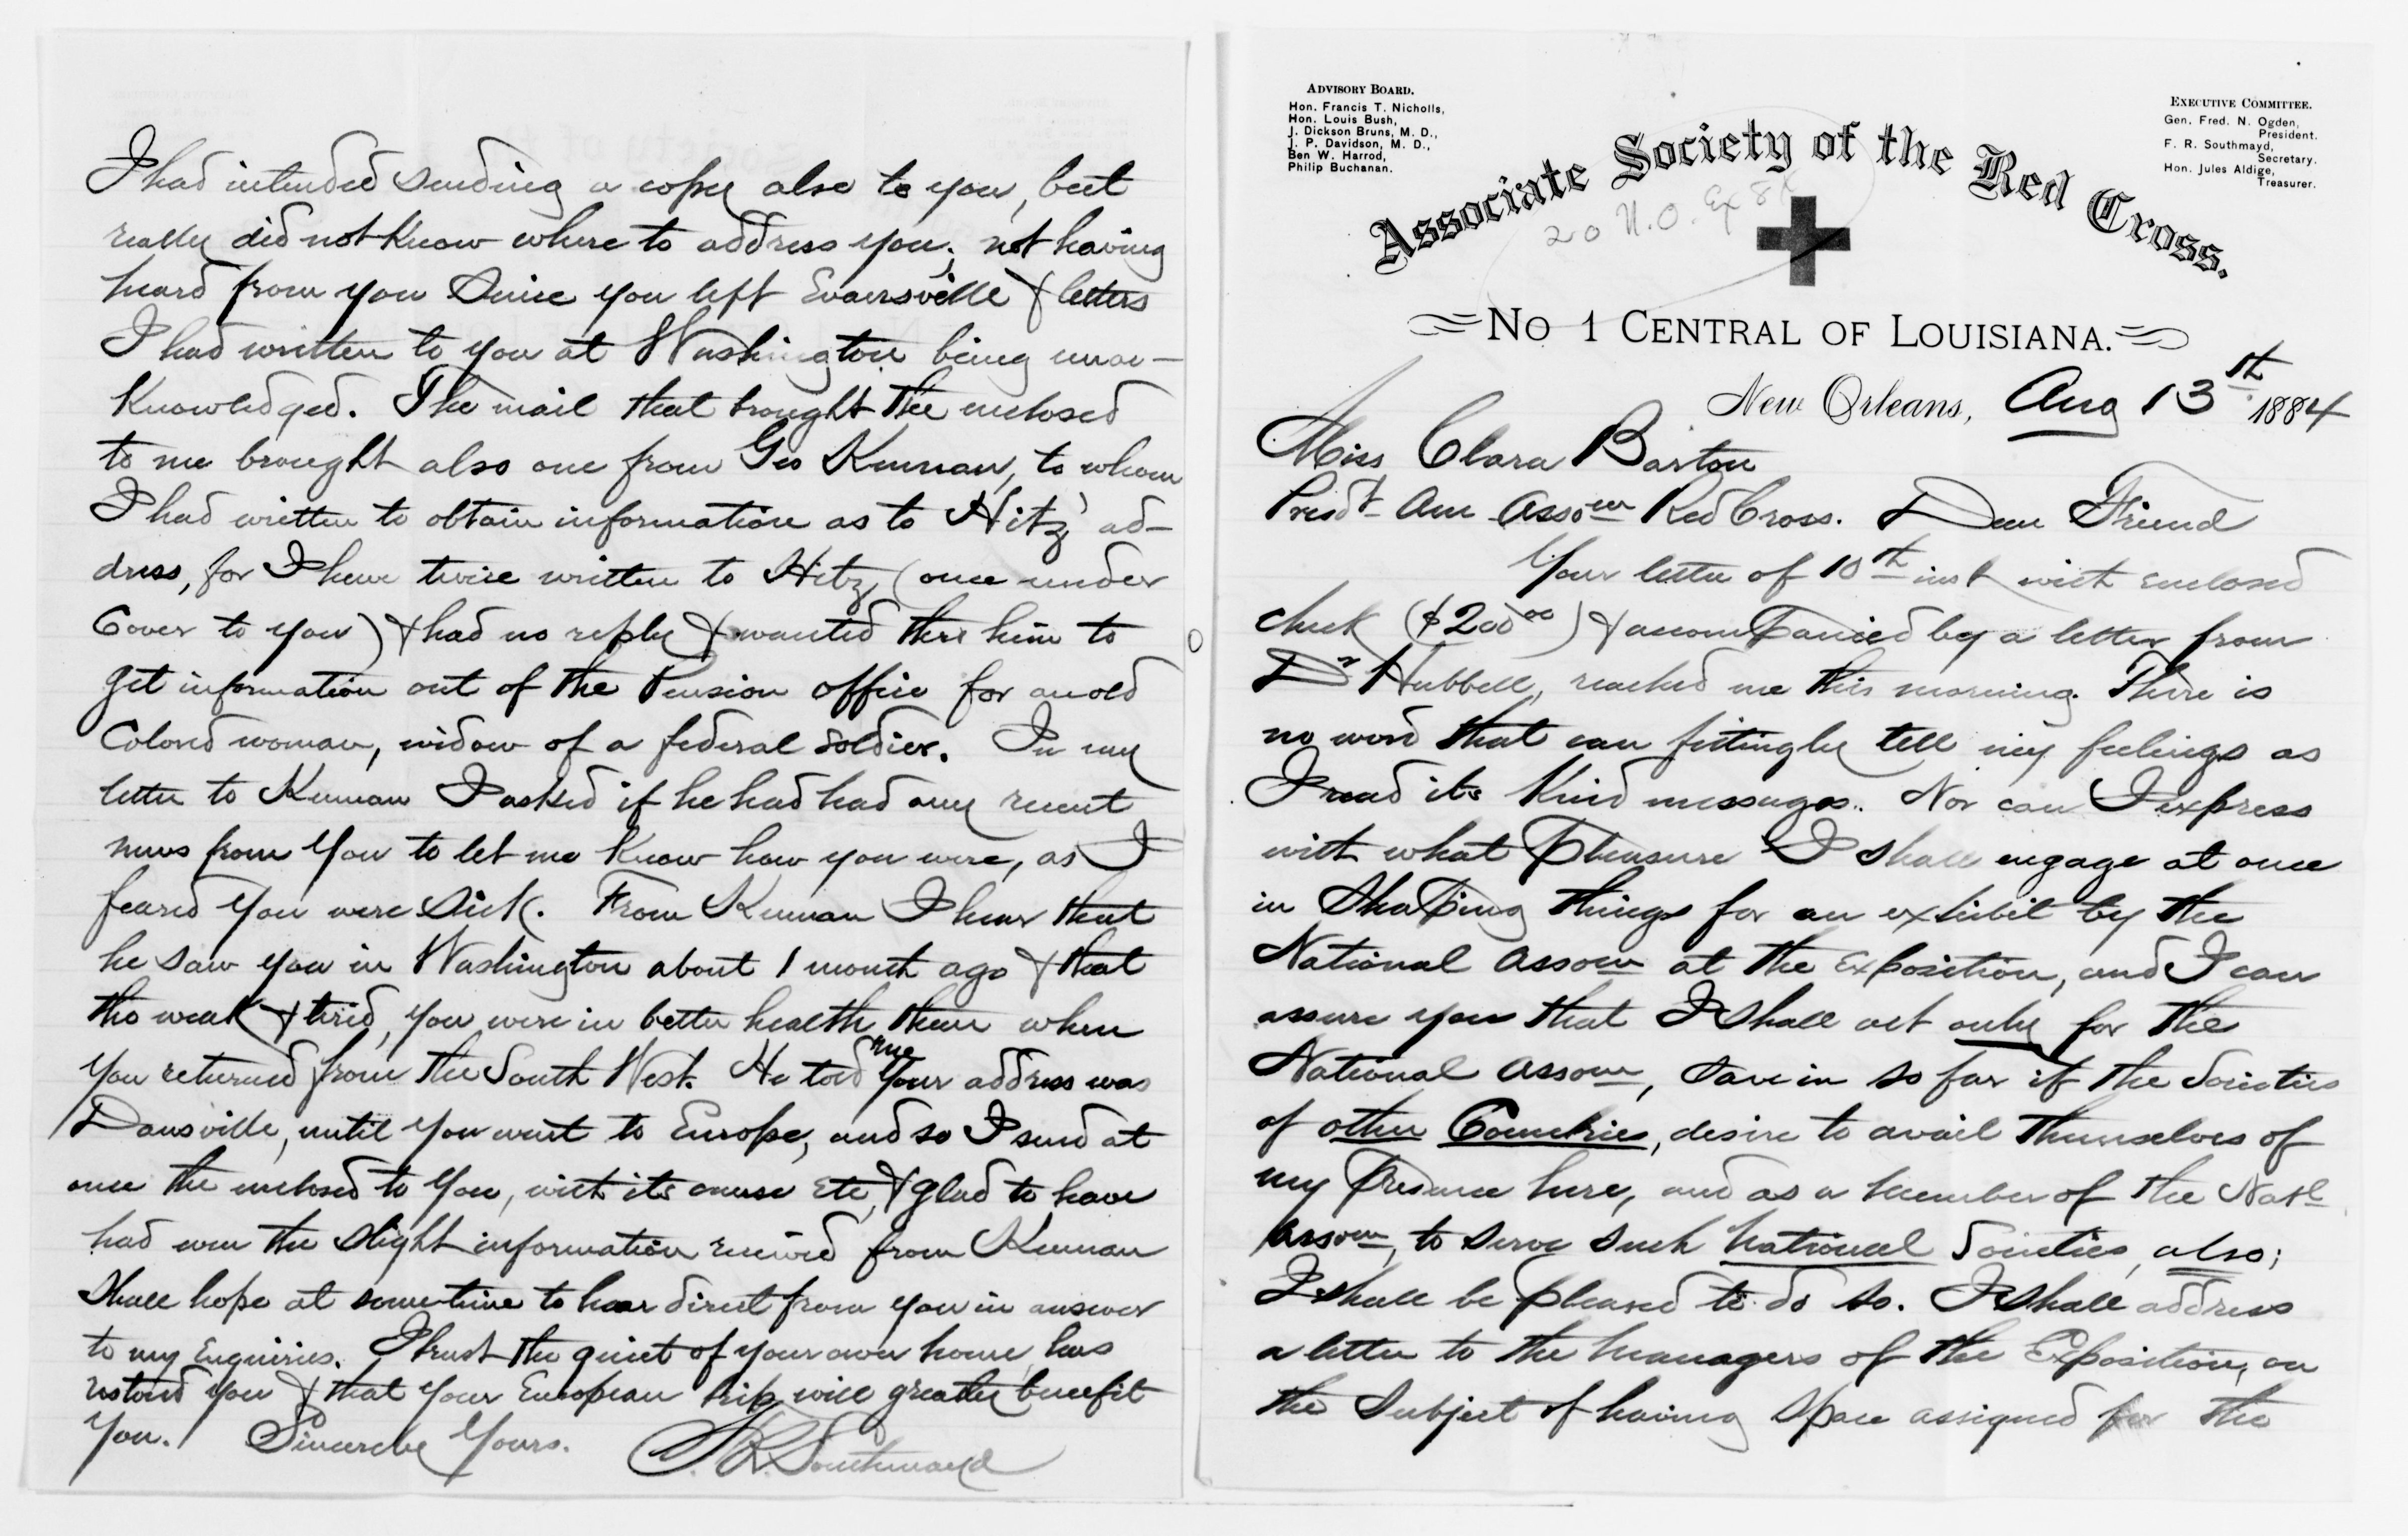 I had intended sending a copy also to you, but
really did not know where to address you, not having
heard from you since you left Evansville & letters
I had written to you at Washington being unac-
knowledged. The mail that brought the enclosed
to me brought also one from Geo Kennan, to whom
I had written to obtain information as to Hitz' ad-
dress, for I have twice written to Hitz (once under
Cover to you) & had no reply & wanted thro him to
get information out of the Pension office for an old
Colored woman, widow of a federal soldier. In my
letter to Kennan I asked if he had had any recent
news from You to let me know how you were, as I
feared You were sick. From Kennan I hear that
he saw you in Washington about 1 month ago & that
tho weak & tired, you were in better health than when
You returned from the South West. He told me Your address was
Dansville, until You went to Europe, and so I send at
once the enclosed to You, with its excuse etc, & glad to have
had even the slight information received from Kennan
Shall hope at sometime to hear direct from you in answer
to my Enquiries. I trust the quiet of your own home has
restored you & that your European trip will greatly benefit
You. Sincerely Yours.
F. R. Southmayd
ADVISORY BOARD.
Hon. Francis T. Nicholls,
Hon. Louis Bush,
J. Dickson Bruns, M. D.,
J. P. Davidson, M. D.,
Ben W. Harrod,
Philip Buchanan.
EXECUTIVE COMMITTEE.
Gen. Fred. N. Ogden,
President.
F. R. Southmayd,
Secretary.
Hon. Jules Aldige,
Treasurer.
Associate Society of the Red Cross.
20 N.O. Ex 84
No 1 CENTRAL OF LOUISIANA.
New Orleans, Aug 13th 1884
Miss Clara Barton
Presdt Am Assocn Red Cross. Dear Friend
Your letter of 10th inst with enclosed
check ($200 00) & accompanied by a letter from
Dr Hubbell, reached me this morning. There is
no word that can fittingly tell my feelings as
I read its kind messages. Nor can I express
with what pleasure I shall engage at once
in shaping things for an exhibit by the
National Assocn at the Exposition, and I can
assure you that I shall act only for the
National Assocn, save in so far if the Societies
of other Countries, desire to avail themselves of
my presence here, and as a member of the Natl
Assocn, to serve such National Societies, also;
I shall be pleased to do so. I shall address
a letter to the Managers of the Exposition, on
the Subject of having space assigned for the